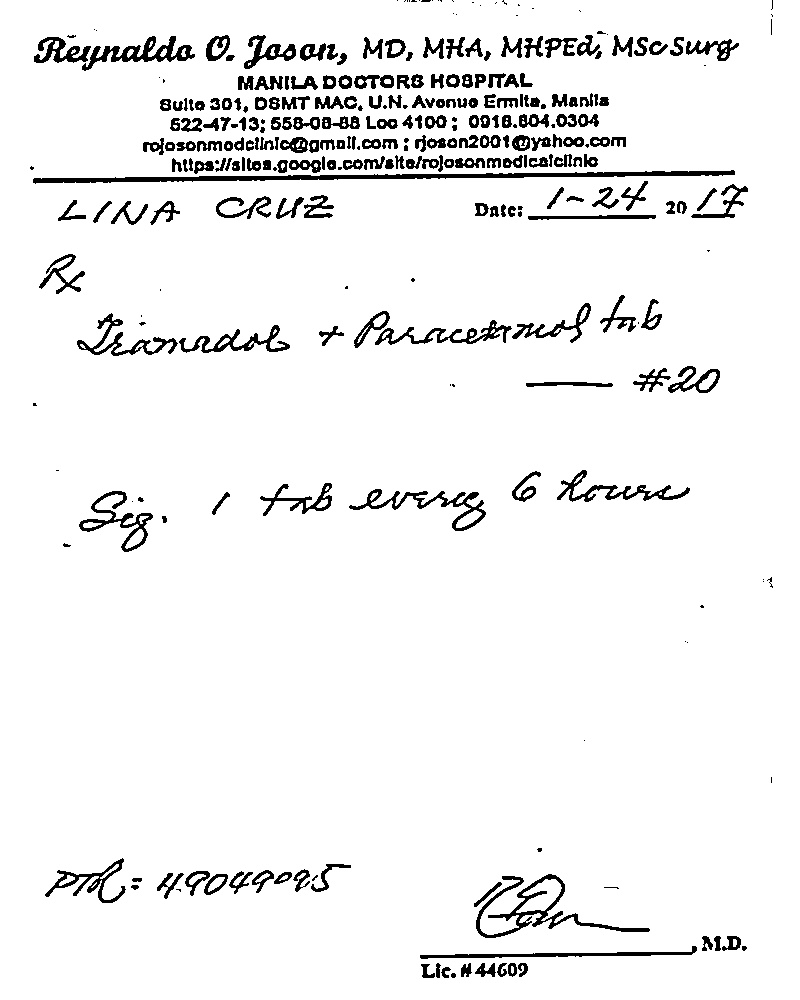 Reynaldo O. Joson, MD, MHA, MHPEd, MSc Surg
MANILA DOCTORS HOSPITAL
Suite 301, DSMT MAC, U.N. Avenue Ermita, Manila
522-47-13; 558-08-88 Loc 4100 ; 0918.804.0304
rojosonmedclinic@gmail.com ; rjoson2001@yahoo.com
https://sites.google.com/site/rojosonmedicalclinic
LINA CRUZ Date: 1-24 20 17
Rx
Tramadol + Paracetamol tab
— #20
Sig. 1 tab every 6 hours
PTR = 49049095
, M.D.
Lic. # 44609